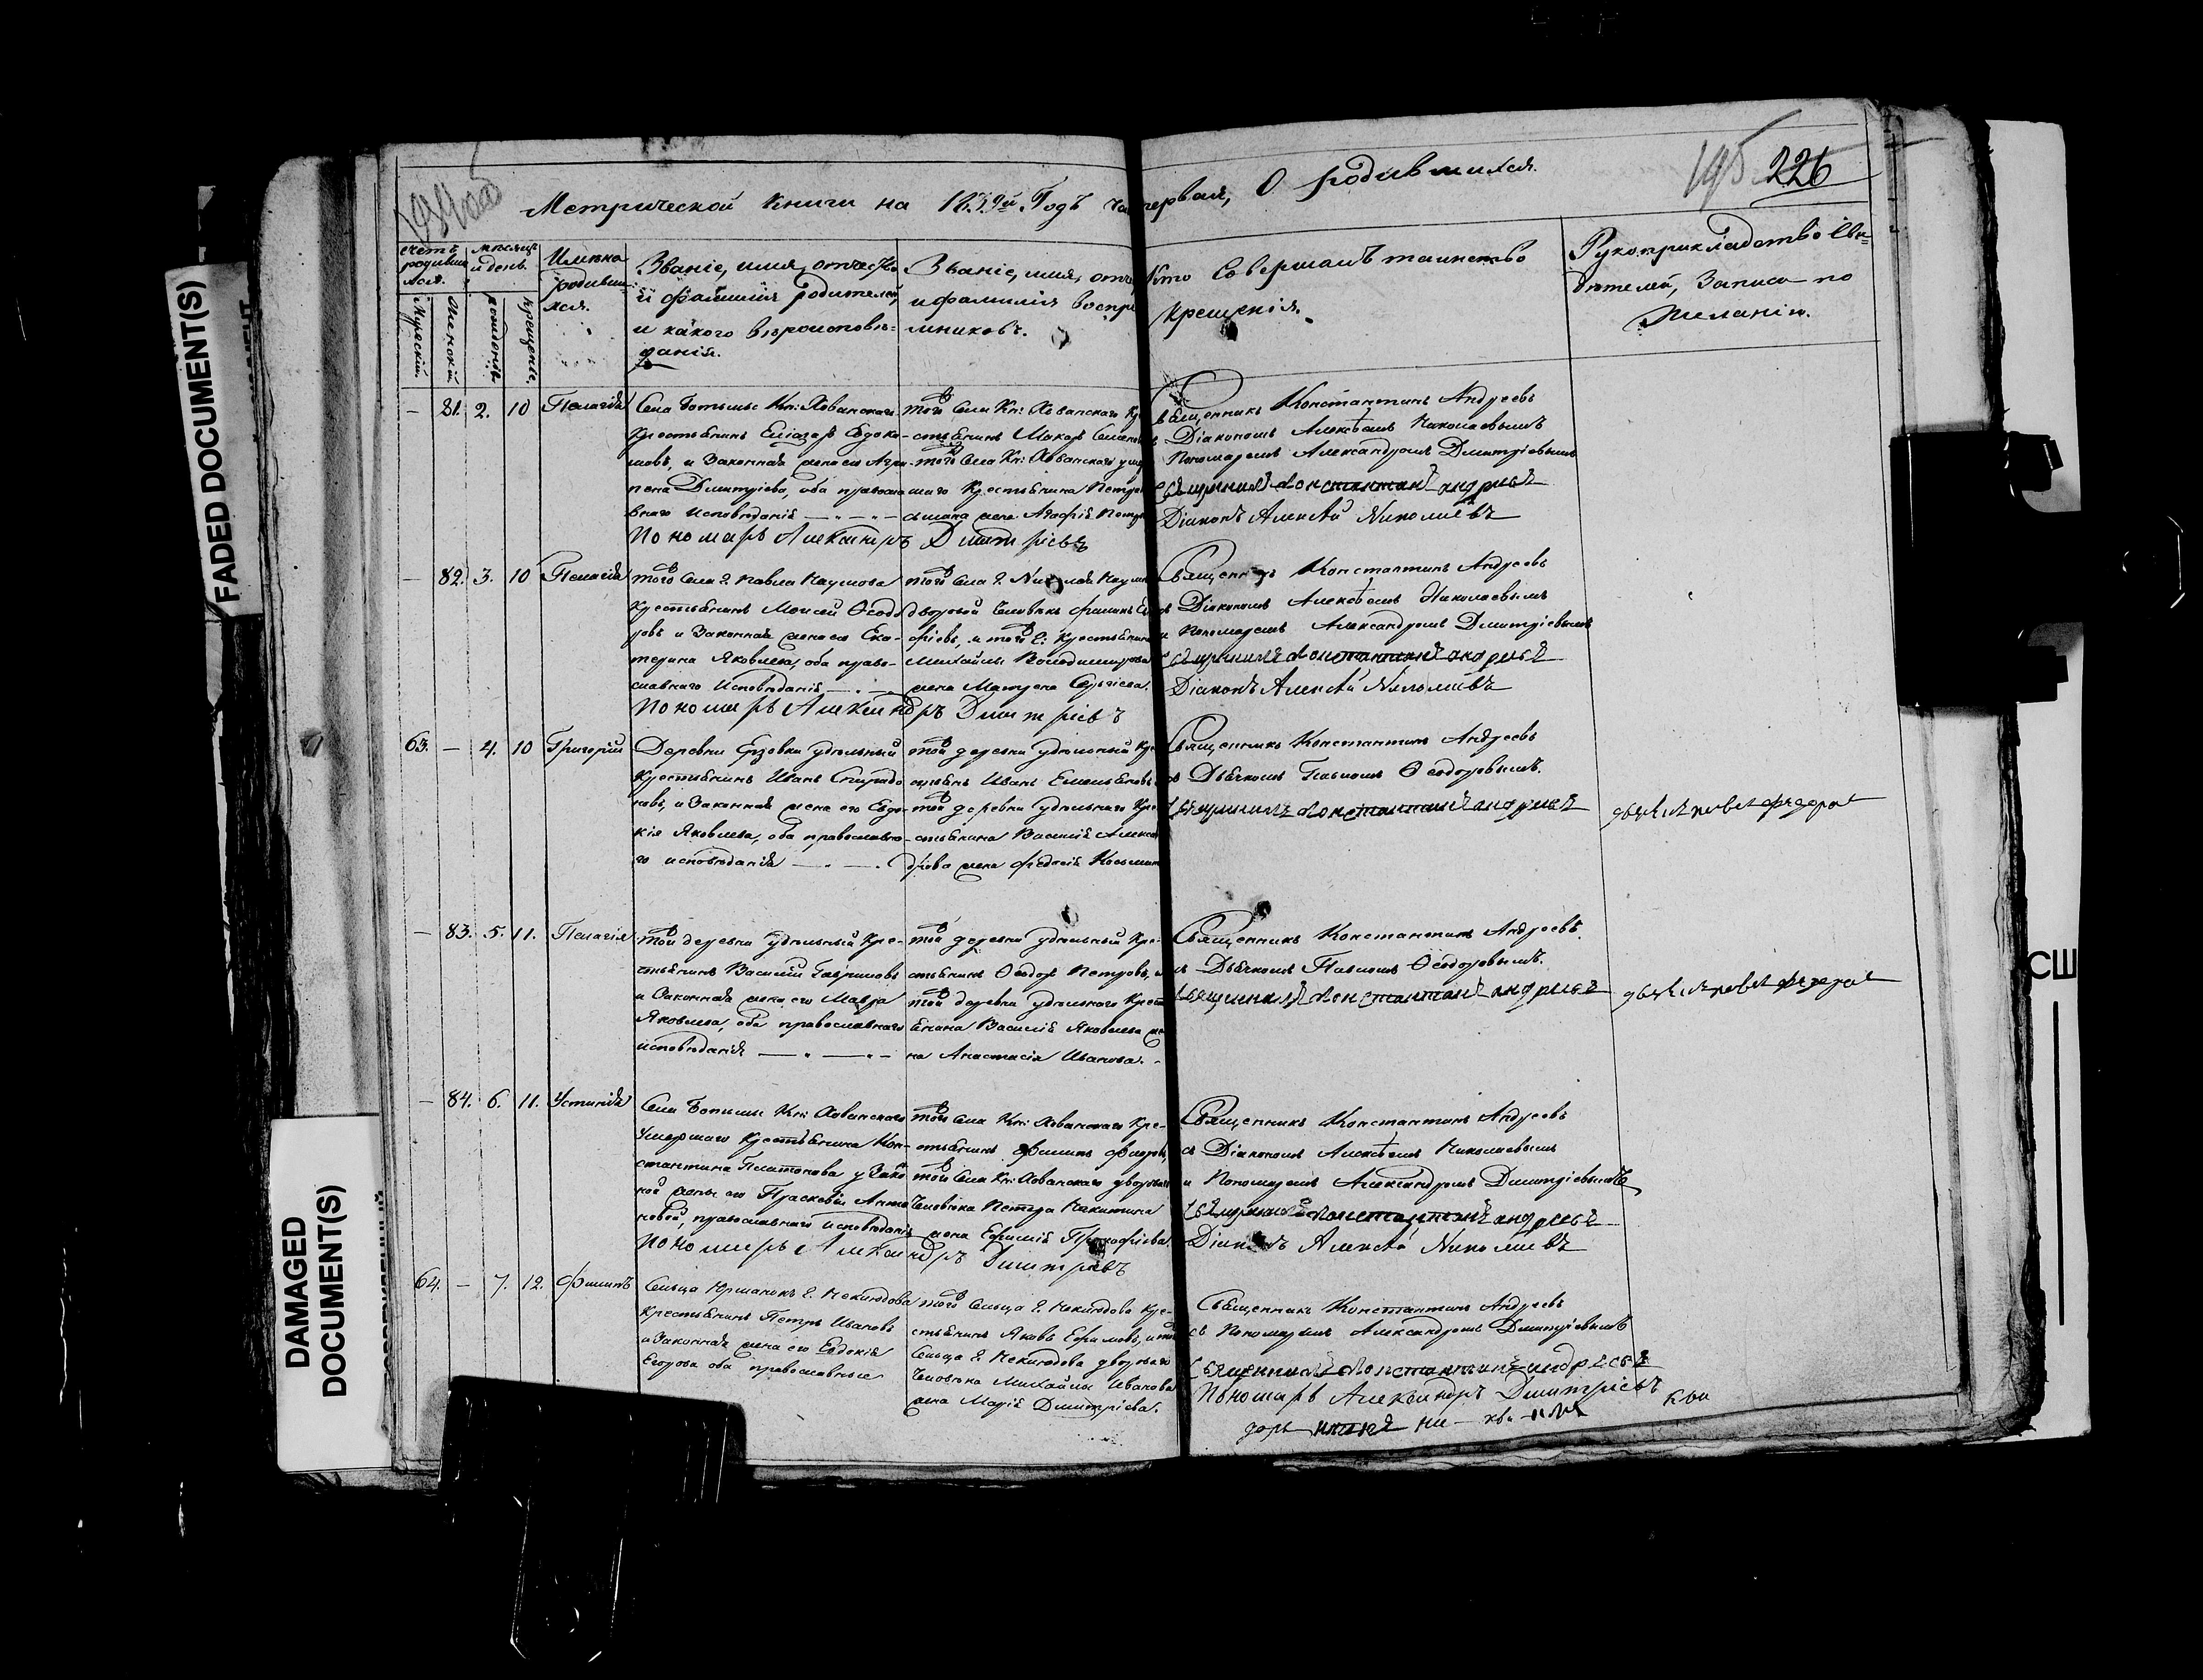 194об
Метрической Книги на 1839й Годъ часть первая, О родившихся.
195 226
Счетъ родившихся.
Мужескій.
Женскій.
Мѣсяцъ и день.
рожденія.
крещенія.
Имена родившихся.
Званіе, имя, отчество
и фамилія родителей,
и какого вѣроисповѣ-
данія.
Званіе, имя, отче
и фамилія воспрі
мниковъ.
Кто Совершалъ таинство
крещенія.
Рукоприкладство Сви-
дѣтелей, Записи по
желанію.
— 81. 2. 10 Пелагія
Села Ботьмы Кн: Хованскаго
Крестьянинъ Еліазаръ Евдоки-
мовъ, и Законная жена его Агри-
пена Димитріева, оба православ
внаго исповѣданія
того Села Кн: Хованскаго Кр
стьянинъ Макаръ Семенов
того Села Кн: Хованскаго умер
шаго Крестьянина Петра
жена Агафія Петр
Священникъ Константинъ Андреевъ
Діакономъ Алексѣемъ Николаевымъ
Пономаремъ Александромъ Димитріевымъ
Священникъ Константинъ Андреевъ
Діаконъ Алексѣй Николаевъ
Пономарь Александръ Димитріевъ
— 82. 3. 10 Пелагія
того Села Г. Павла Наумова
Крестьянинъ Моисей Ѳеодо
ровъ и Законная жена его Ека-
терина Яковлева, оба право-
славнаго исповѣданія
того Села Г. Николая Наум
дворовой Человѣкъ Филипъ
фіевъ, и того С: Крестьянина
Михайлы Володимирова
жена Матрена Сергіева.
Священникъ Константинъ Андреевъ
съ Діакономъ Алексѣемъ Николаевымъ
и Пономаремъ Александромъ Димитріевымъ
Священникъ Константинъ Андреевъ
Діаконъ Алексѣй Николаевъ
Пономарь Александръ Димитріевъ
63. — 4. 10 Григорій
Деревни Ерзовки удѣльный
Крестьянинъ Иванъ Спиридо
новъ, и Законная жена его Евдо-
кія Яковлева, оба православна-
го исповѣданія
той деревни удѣльный Кре
стьянъ Иванъ Емельяновъ
той деревни удѣльнаго Кре
стьянина Василія Алекса
дрова жена Федосія Косьмин
Священникъ Константинъ Андреевъ
съ Дьячкомъ Павломъ Ѳеодоровымъ.
Священникъ Константинъ Андреевъ
дьячекъ павелъ федоровъ
— 83. 5. 11. Пелагія
той деревни удѣльный Кре-
стьянинъ Василій Гавриловъ
и Законная жена его Мавра
Яковлева, оба православнаго
исповѣданія
той деревни удѣльный Кре-
стьянинъ Ѳеодоръ Петровъ, и
той деревни удѣльнаго Крест
ьянина Василія Яковлева же
на Анастасія Иванова.
Священникъ Константинъ Андреевъ
съ Дьячкомъ Павломъ Ѳеодоровымъ.
Священникъ Константинъ Андреевъ
дьячекъ павелъ федоровъ
— 84. 6. 11. Устинія
Села Ботьмы Кн: Хованскаго
Умершаго Крестьянина Кон-
стантина Платонова у Зако
ной жены его Прасковіи Анто
новой, православнаго исповѣданія
того Села Кн: Хованскаго Кре-
стьянинъ Филипъ
той Села Кн: Хованскаго двороваго
Человѣка Петра Никитина
жена Ефимія Прокофіева
Священникъ Константинъ Андреевъ
съ Діакономъ Алексѣемъ Николаевымъ
и Пономаремъ Александромъ Димитріевымъ
Священникъ Константинъ Андреевъ
Діаконъ Алексѣй Николаевъ
Пономарь Александръ Димитріевъ
64. — 7. 12. Филипъ
Сельца Юрманокъ Г. Неклюдова
Крестьянинъ Петръ Ивановъ
и Законная жена его Евдокія
Егорова оба православные
того Сельца Г. Неклюдова Кре-
стьянинъ Яковъ Ефимовъ, и того
Сельца Г. Неклюдова двороваго
Человѣка Михайлы Иванова
жена Марія Димитріева.
Священникъ Константинъ Андреевъ
съ Пономаремъ Александромъ Димитріевымъ
Священникъ Константинъ Андреевъ
Пономарь Александръ Димитріевъ
FADED DOCUMENT(S)
DAMAGED
DOCUMENT(S)
СШ